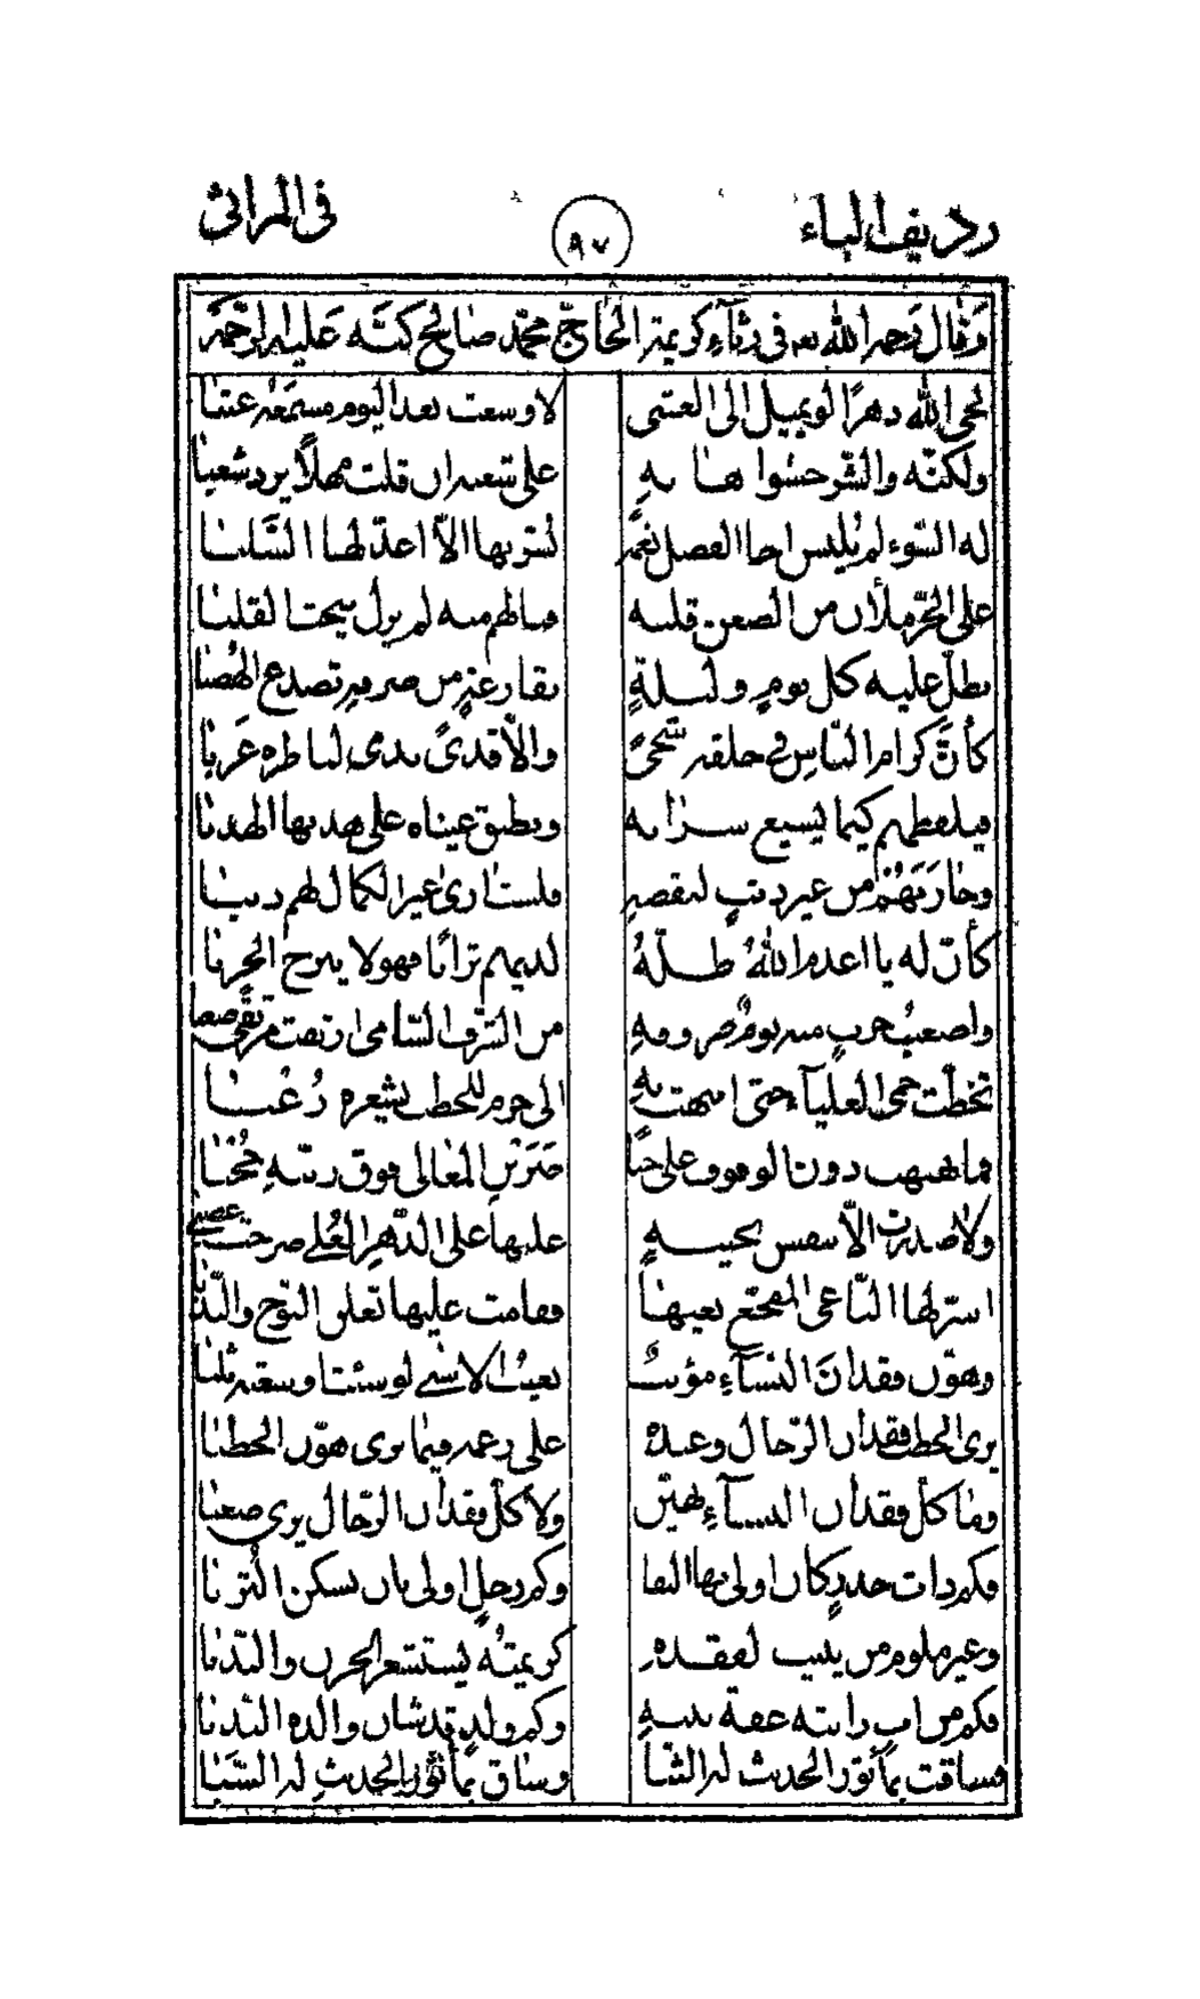 رديف الباء
٩٧
في المراثي
وقال رحمه الله في رثاء كريمة الحاج محمد صالح كبه عليه الرحمة
لحى الله دهرًا لو يميل إلى العتبى لاوسعت بعد اليوم مسمعه عتبا
ولكنّه والشّر حشوا هابه على شعب ان قلت مهلاً يزد شعبا
له السّوء لم يلبس اخا الفضل نعمة
على الحرّ ملأن من الضغن قلبه فبالهم منه لم يزل ينحت القلبا
يطلّ عليه كل يومٍ وليلةٍ بقارعةٍ من صرفه تصدع الهضبا
كأنّ كرام النّاس في حلقه شجىً والّا قذىً يدمي لناظره غربا
فيلفظهم كيما يسيغ شرابه ويطبق عيناه على هدبها الهدبا
وحاربهم من غير ذنبٍ لنقصه فلست ارى غير الكمال لهم ذنبا
كأنّ له يا اعدم الله ظلّهُ لديهم تراثا فهو لا يبرح الحربا
واصعب حرب منه يوم صروفه من الشرف السّامي ارتقت مرتقى صعبا
تخطّت حمى العلياء حتى انتهت به الى حرم للخطب يشعره رعبا
فما نهنهت دون الوقوف على خبا
ولا صدرت الّا بنفس نجيبةٍ عليها على الدهر العلى صرخت غضبى
اسرّ لها النّاعي المفجّع نعيها فقامت عليها تعلن النوح والنّدبا
وهوّن فقدان النساء مؤنبٌ بعيبٌ الاسى لو شئتا وسعته ثلبا
يرى الخطب فقدان الرّجال وعنده على رغمه فيما يرى هوّن الخطبا
وما كلّ فقدان النسآء بهيّن ولا كلّ فقدان الرّجال يرى صعبا
فكم ذات خدرٍ كان اولى بها البقا وكم رجلٍ اولى بان يسكن التربا
وغير ملوم من يبيت لفقده كريمتُه يستشعر الحزن والنّدبا
فكم من ابٍ زانته عفة بنته وكم ولدٍ قد شان والده الندبا
فساقت بمأثور الحديث له الثنا وساق بمأثور الحديث له السّبّا